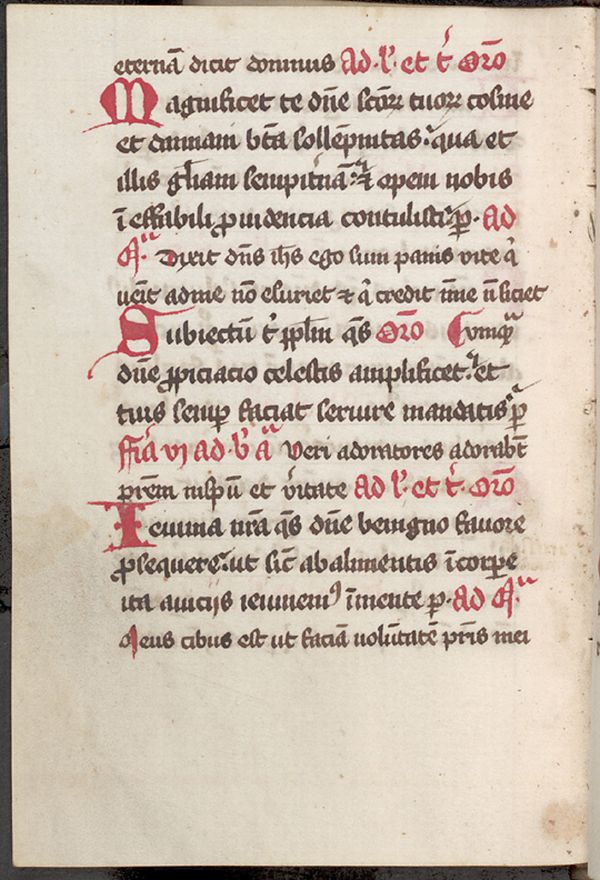 eternā dicit dominus Ad · l̄ · et t᷑ Orō
Magnificet te dn̄e sctōꝝ tuoꝝ cosme
et damiani bt̄a sollēpnitas · qua et
illis glīam sempit̄nā · ⁊ opem nobis
ī effabili ꝓuidencia contulisti · ꝑ · Ad
Dixit dn̄s ih̄s ego sum panis vite qͥ
uen̄it ad me nō esuriet ⁊ qͥ credit ī me n̄ siciet
Subiectū t᷑ pplm̄ qs̄ Orō
dn̄e ꝓpiciacio celestis amplificet · et
tuis semꝑ faciat seruire mandatis ꝑ
ffīa vj ad · b̄ · a Veri adoratores adorabt̄
prēm in sp̄u et v̄itate Ad l̄ · et t᷑ · Orō
Ieiunia nr̄a qs̄ dn̄e benigno fauore
ꝓsequere · ut sic̄ ab alimentis ī corꝑe
ita a viciis ieiunemꝰ ī mente ꝑ · Ad
Meus cibus est ut faciā volūtatē pr̄is mei